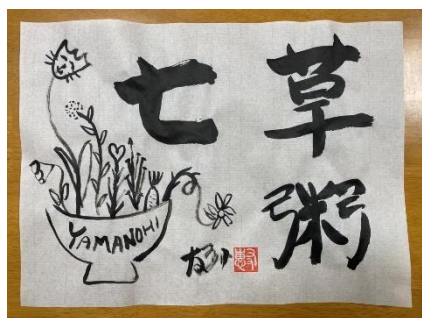 七草
粥
YAMANOHI